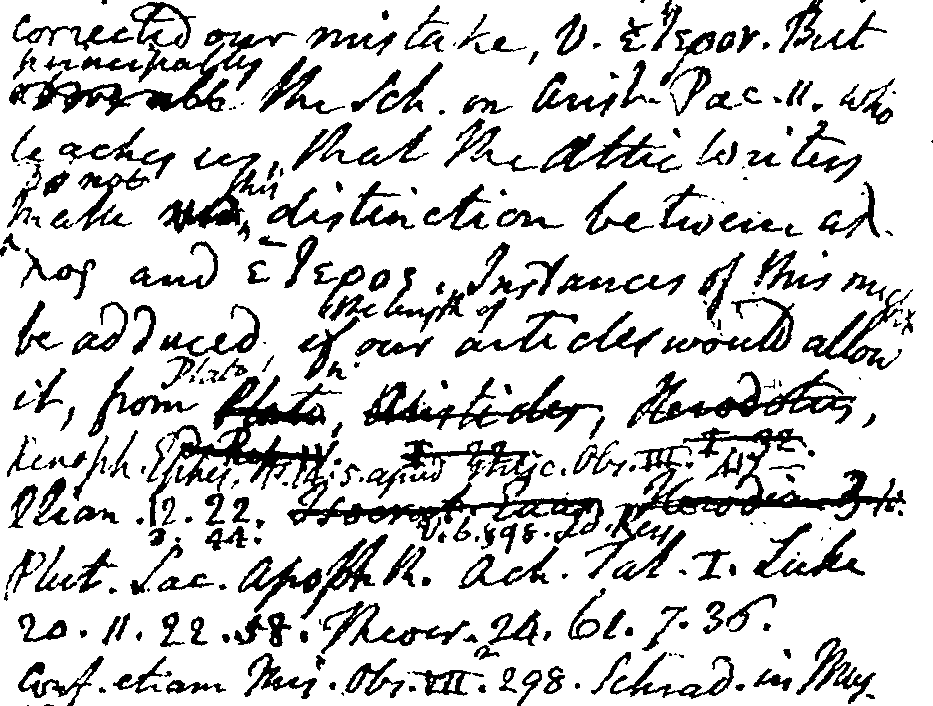 corrected our mistake, V. ἕτερον. But
principally
the Sch. on Arist. Pac. 11. who
teaches us, that the Attic writers
do not this
make distinction between αλ
λος and ἕτερος. Instances of this might
the length of
be adduced if our articles would allow
Plato,
it, from Plato, Aristides, Herodotus,
Xenoph. Ephes. 5. apud Obs. III.
Ælian. 12. 22. Herodia. 3
3. 44. V. 6. 898. Ed. Reis
Plut. Lac. Apophth. Ach. Tat. I. Luke
20. 11. 22. 58. Theocr. 24. 61. 7. 36.
Conf. etiam Mis. Obs. III. 298. Schrad. in Mus.